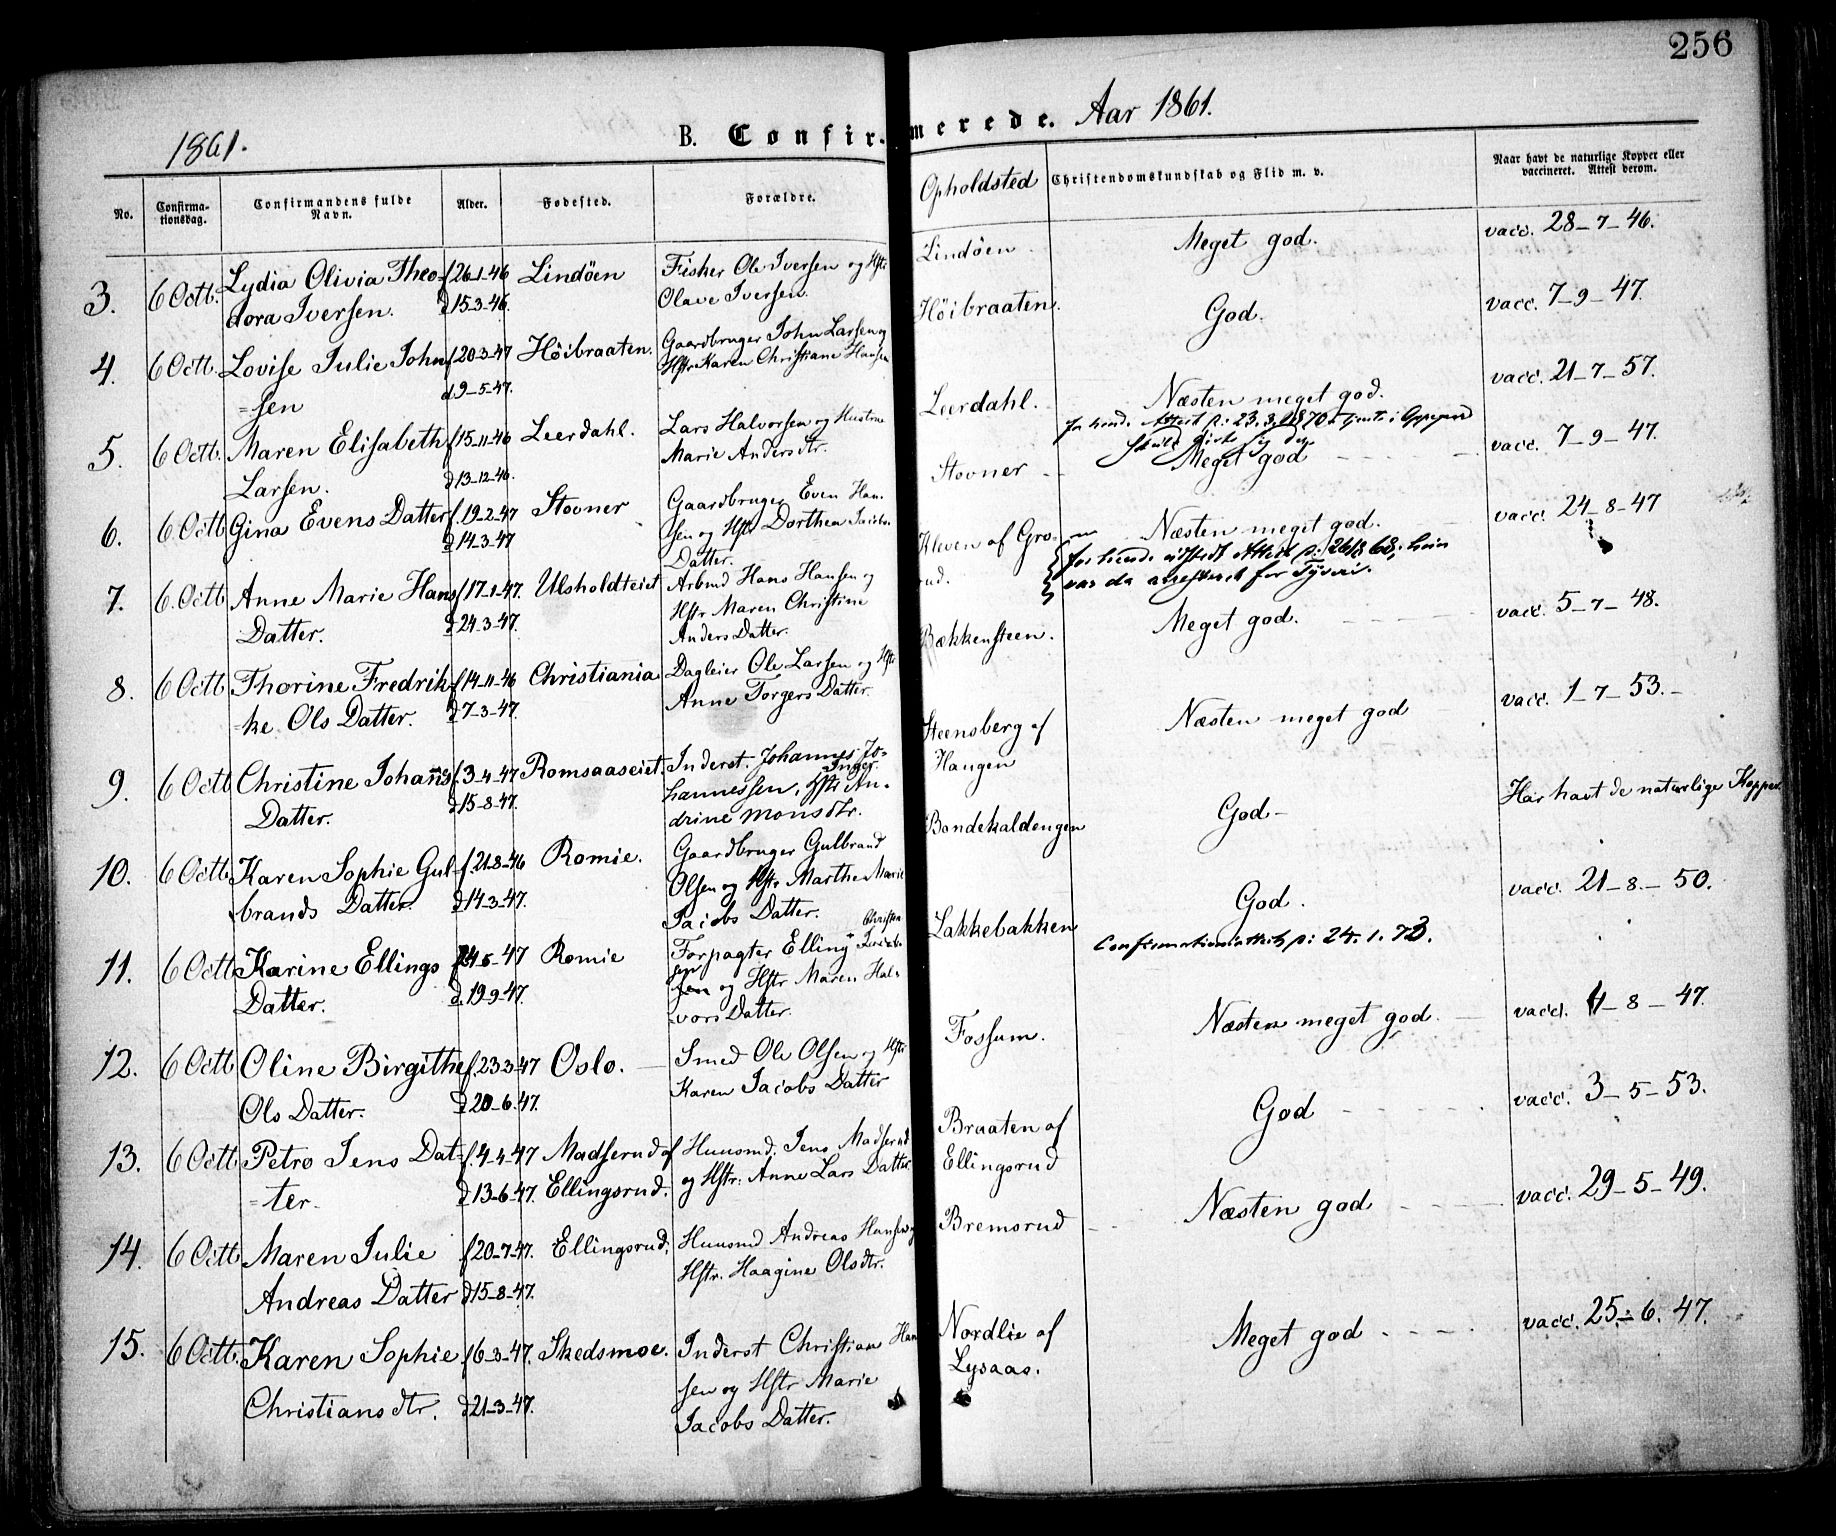 256
1861.
B. Confirmerede. Aar 1861.
No.
Confirmationsdag.
Confirmandens fulde Navn.
Alder.
Fødested.
Forældre.
Opholdsted
Christendomskundskab og Flid m. v.
Naar havt de naturlige Kopper eller vaccineret. Attest derom.
3. 6 Octb. Lydia Olivia Theo- f 26-1-46 Lindöen Fisker Ole Iversen og Hstr Lindöen Meget god. vacc. 28-7-46.
dora Iversen. d 15-3-46. Olave Iversen.
4. 6 Octb. Lovise Julie John f 20-3-47 Höibraaten. Gaardbruger John Larsen og Höibraaten. God. vacc. 7-9-47.
=sen d 9-5-47. Hstr Karen Christiane Hansen
5. 6 Octb. Maren Elisabeth f 15-11-46 Leerdahl. Lars Halvorsen og Hustrue Leerdahl. Næsten meget god. vacc. 21-7-57.
Larsen. d 13-12-46. Marie Andersdtr. Attest p: 23.3.1870
6. 6 Octb. Gina Evens Datter f. 19-2-47 Stovner Gaardbruger Even Han- Stovner Meget god vacc. 7-9-47.
d 14-3-47 sen og Hstr Dorthea Jacobs
Datter.
7. 6 Octb. Anne Marie Hans f 17-1-47. Ulsholdteiet Arbmd Hans Hansen og Kleven af Gro- Næsten meget god. vacc. 24-8-47
Datter. d 24-3-47. Hstr Maren Christine rud. for hende udstedt Attest p: 26/8 68, hun
Anders Datter. var da arresteret for Tyveri.
8. 6 Octb. Thorine Fredrik- f 14-11-46 Christiania Dagleier Ole Larsen og Hstr Bækkensteen. Meget god. vacc. 5-7-48.
=ke Ols Datter. d 7-3-47. Anne Torgers Datter.
9. 6 Octb. Christine Johans f. 3-4-47 Romsaaseiet. Inderst. Johannes Jo- Steensberg af Næsten meget god vacc. 1-7-53.
Datter. d 15-8-47. hannessen, Hstr Inger An- Haugen
drine Monsdtr.
10. 6 Octb. Karen Sophie Gul- f. 21-8-46 Romie. Gaardbruger Gulbrand Bondekaldengen God Har havt de naturlige Kopper.
brands Datter. d 14-3-47. Olsen og Hstr Marthe Marie
Jacobs Datter.
11. 6 Octb. Karine Ellings f 24-5-47 Romie Forpagter Elling Christen Lakkebakken God. vacc. 21-8-50.
Datter. d. 19-9-47. sen og Hstr Maren Hal- Confirmationsattest p: 24.1.73.
vors Datter.
12. 6 Octb. Oline Birgithe f. 23-3-47 Oslo. Smed Ole Olsen og Hstr Fossum. Næsten meget god. vacc. 4-8-47.
Ols Datter. d 20-6-47. Karen Jacobs Datter
13. 6 Octb. Petro Jens Dat- f. 4-4-47 Madserud af Huusmd. Jens Madserud Braaten af God vacc. 3-5-53.
=ter. d 13-6-47. Ellingsrud. og Hstr: Anne Lars Datter. Ellingsrud
14. 6 Octb. Maren Julie f 20-7-47. Ellingsrud. Huusmd Andreas Hansen og Bremsrud Næsten god vacc. 29-5-49.
Andreas Datter d 15-8-47. Hstr. Haagine Olsdtr.
15. 6 Octb. Karen Sophie f 6-3-47. Skedsmoe. Inderst Christian Han Nordlie af Meget god vacc. 25-6-47.
Christiansdtr. d 21-3-47. sen og Hstr Marie Lysaas.
Jacobs Datter.